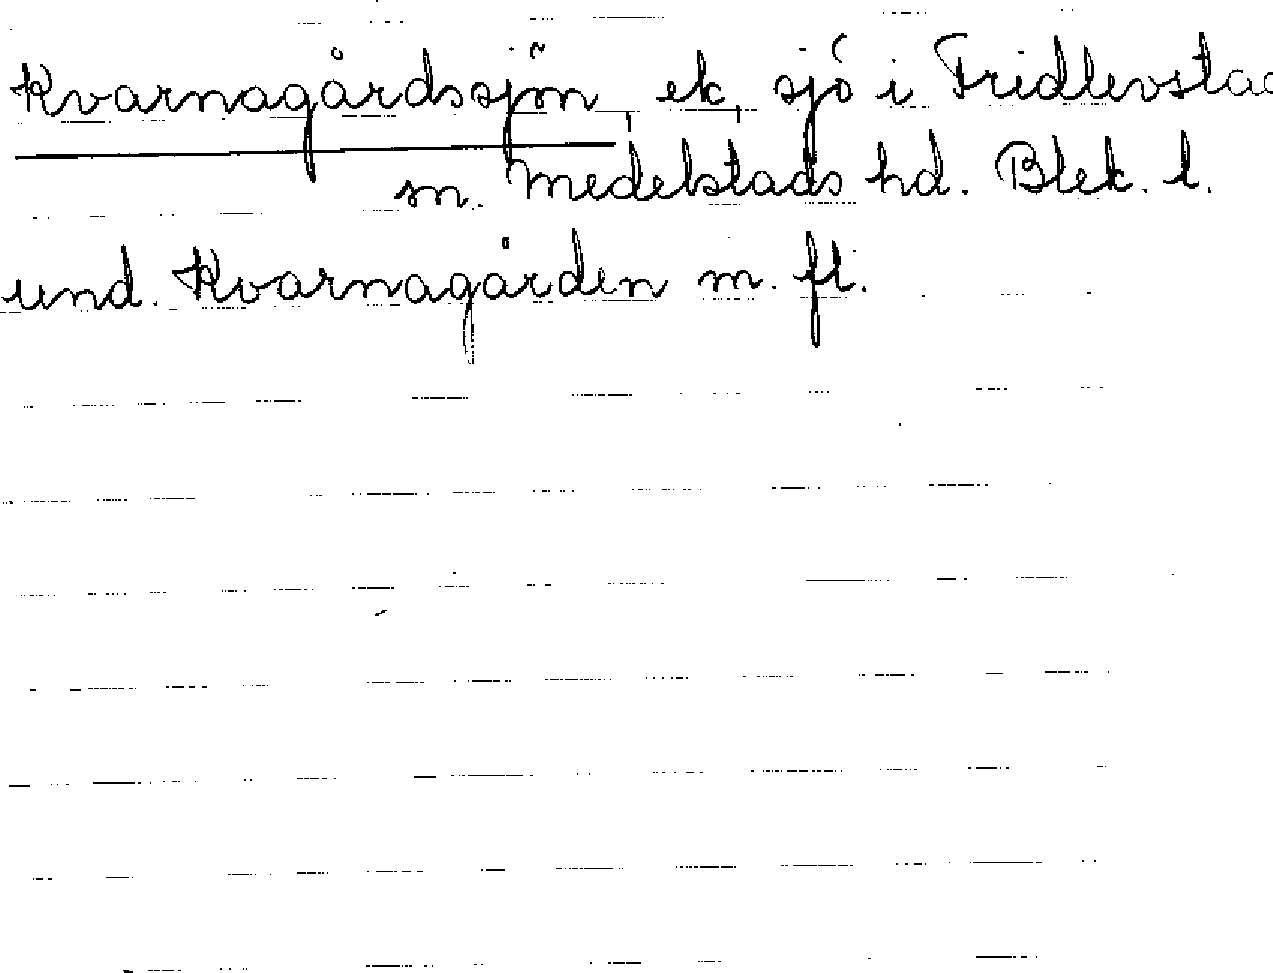 Kvarnagårdssjön, ek, sjö i Fridlevstad
sn. Medelstads hd. Blek. l.
und. Kvarnagården m. fl.